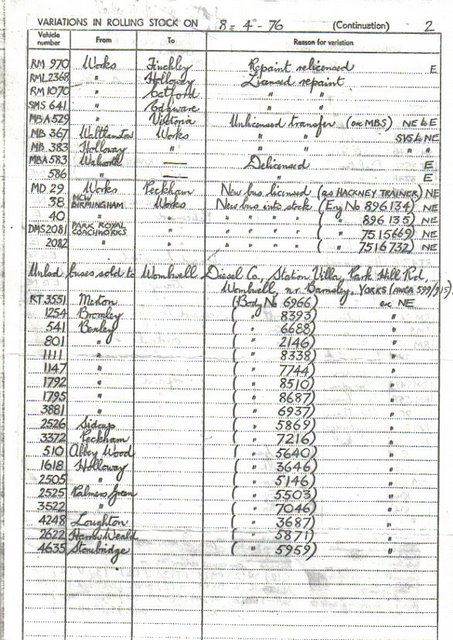 VARIATIONS IN ROLLING STOCK ON 8 - 4 - 76 (Continuation) 2
Vehicle number From To Reason for variation
RM 970 Works Finchley Repaint relicensed E
RML2368 " Holloway Licensed repaint
RM 1070 " Catford " "
SMS 641 " Edgware " "
MBA529 " Victoria Unlicensed transfer (ex MBS) NE & E
MB 367 Walthamstow Works " " NE
MB 383 Holloway " " " " "
MBA583 Walworth — Delicensed E
586 " — " E
MD 29 Works Peckham New bus licensed (as HACKNEY TRAINER) NE
38 NEW BIRMINGHAM Works New bus into stock (Eng No 896134) NE
40 " " " " " " ( " 896135) NE
DMS2081 PARK ROYAL COACHWORKS " " " " " ( " 7515669) NE
2082 " " " " " ( " 7516732) NE
Unlcd buses sold to Wombwell Diesel Co, Station Villa, Park Hill Rd,
Wombwell, nr. Barnsley, YORKS
RT3551 Merton (Body No 6966) ex NE
1254 Bromley ( " 8393) "
541 Bexley ( " 6688) "
801 " ( " 2146) "
1111 " ( " 8338) "
1147 " ( " 7744) "
1792 " ( " 8510) "
1795 " ( " 8687) "
3881 " ( " 6937) "
2526 Sidcup ( " 5869) "
3372 Peckham ( " 7216) "
510 Abbey Wood ( " 5640) "
1618 Holloway ( " 3646) "
2505 " ( " 5146) "
2525 Palmers Green ( " 5503) "
3522 " ( " 7046) "
4248 Loughton ( " 3687) "
2622 Harrow Weald ( " 5871) "
4635 Stonebridge ( " 5959) "